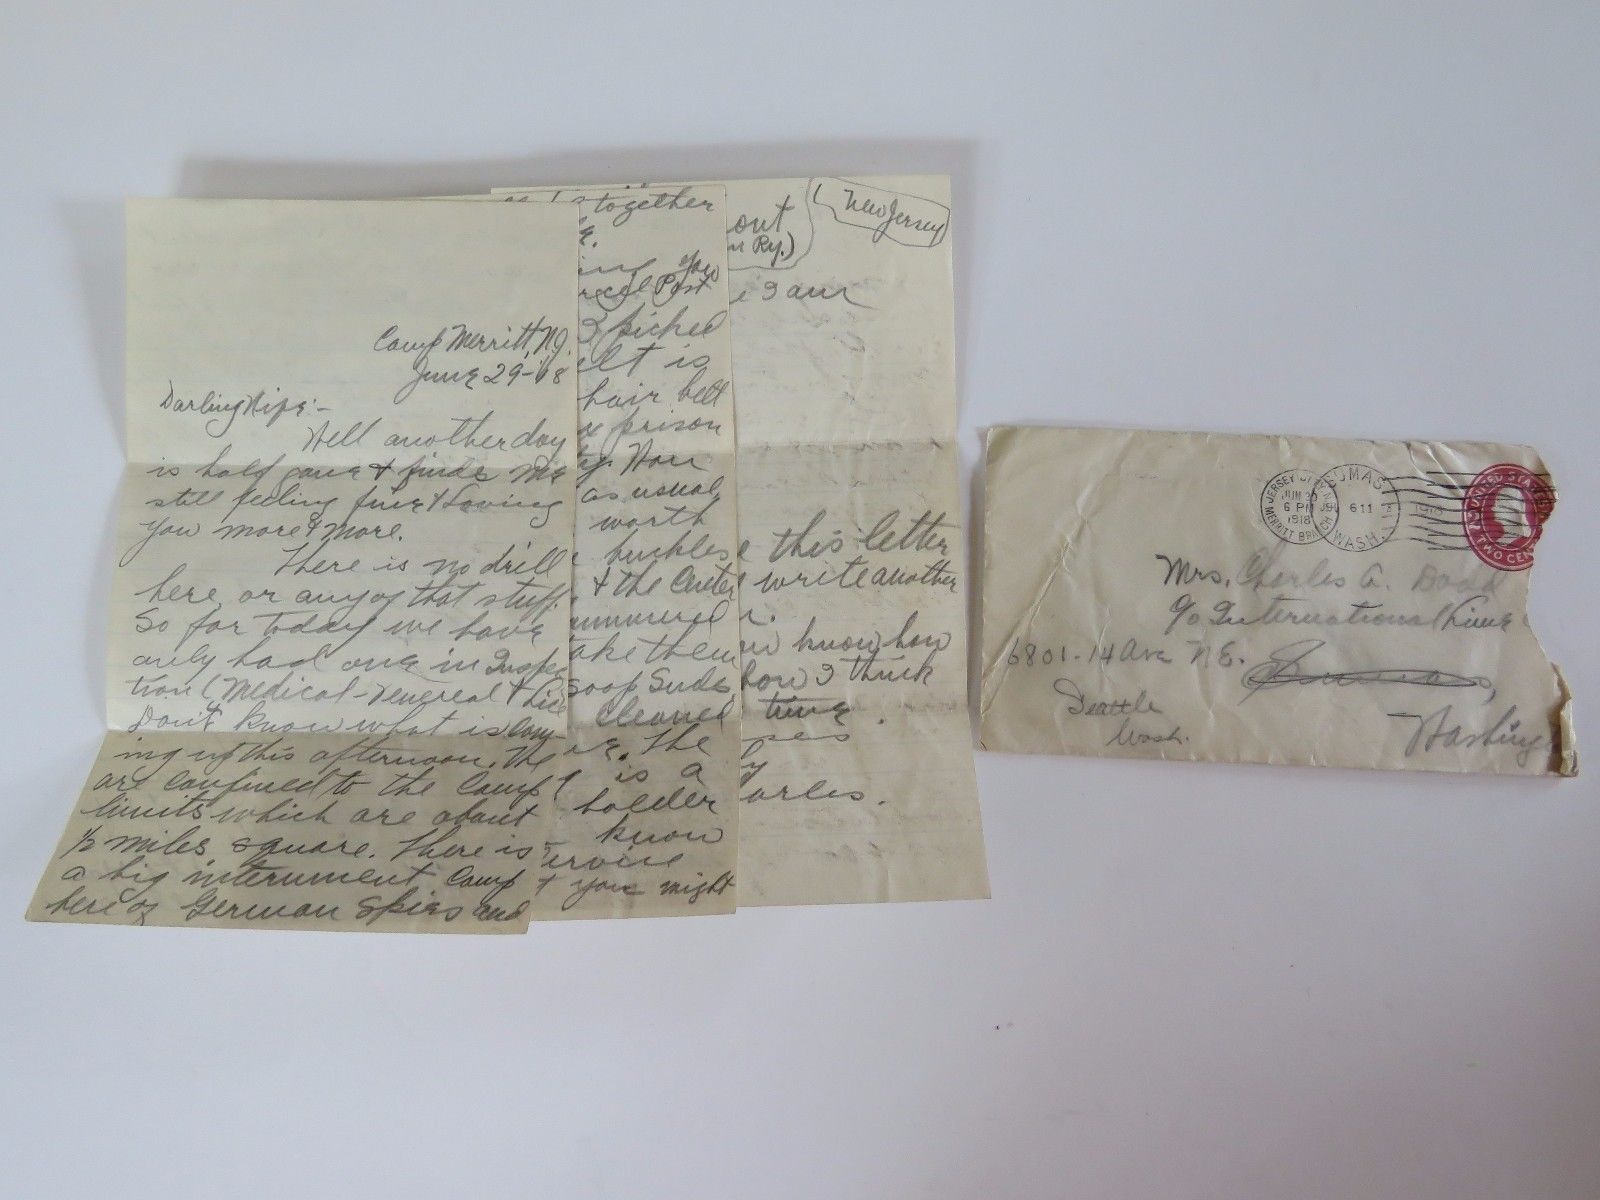 Camp Merritt, N.J.
June 29-18
Darling Wife:-
Well another day
is half gone & finds me
still feeling fine & loving
you more & more.
There is no drill
here or any of that stuff.
So far today we have
only had one in Inspec-
tion (Medical-Venereal & Lice
Don't know what is com-
ing up this afternoon. We
are confined to the Camp
limits which are about
1/2 miles square. There is
a big internment Camp
here of German Spies and
together
you
Post
I picked
elt is
hair belt
prison
as usual,
worth
buckles
& the Center
ake them
Soap Suds
cleaned
The
is a
holder
know
& you might
out
n Ry.)
New Jersey
I am
this letter
write another
know how
how I think
time.
arles.
JERSEY CI
MERRITT BRANCH
JUN 30
6 PM
1918
SUMAS
WASH.
6 11
1918
UNITED STATES
TWO CEN
Mrs. Charles A. Dodd
c/o International Lime
6801-14 Ave N.E.
Sumas,
Seattle
Wash.
Washing